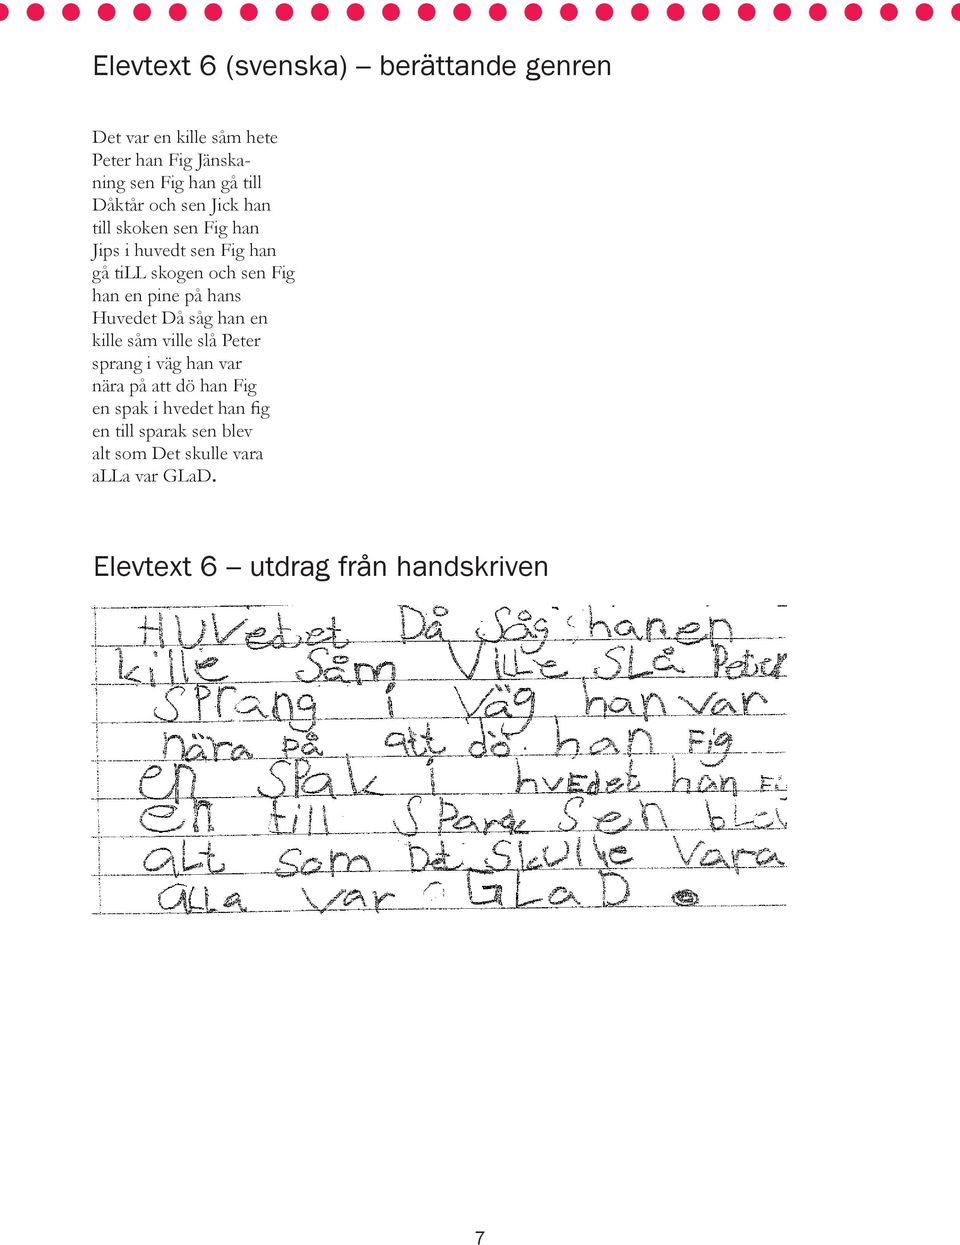 Elevtext 6 (svenska) – berättande genren
Det var en kille såm hete
Peter han Fig Jänska-
ning sen Fig han gå till
Dåktår och sen Jick han
till skoken sen Fig han
Jips i huvedt sen Fig han
gå tiLL skogen och sen Fig
han en pine på hans
Huvedet Då såg han en
kille såm ville slå Peter
sprang i väg han var
nära på att dö han Fig
en spak i hvedet han fig
en till sparak sen blev
alt som Det skulle vara
aLLa var GLaD.
Elevtext 6 – utdrag från handskriven
HUVedet Då Såg han en
kille Såm VILLE SLå Peter
SPrang i Väg han var
nära på att dö han Fig
en SPak i hvEdet han Fi
en till SParak Sen bLev
aLt som Det Skulle Vara
aLLa var GLaD.
7